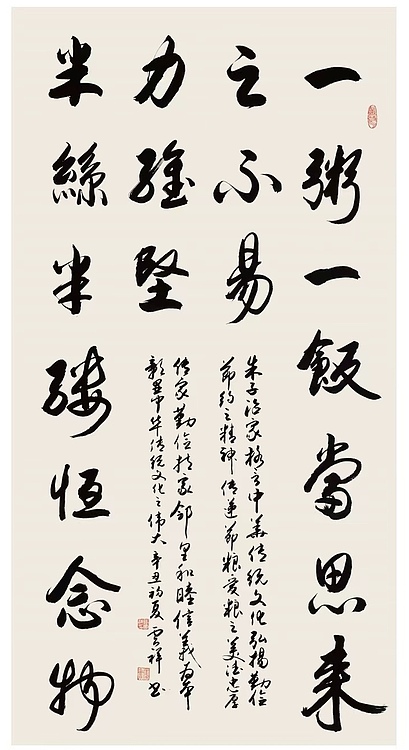 一粥一飯當思来
之不易
半絲半縷恒念物
力維堅
朱子治家格言中華传统文化弘揚勤俭
节约之精神传递节粮爱粮之美德忠厚
传家勤俭持家邻里和睦信義為本
彰显中华传统文化之伟大辛丑初夏云祥书